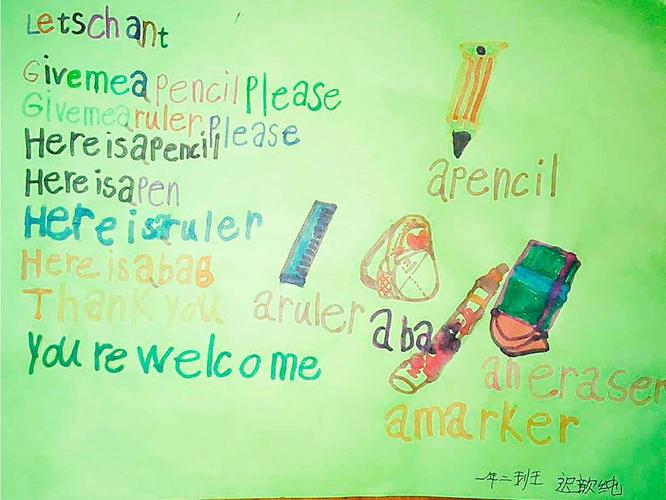 Letschant
Givemea pencil Please
Givemea ruler Please
Here is a pencil
Here is a pen
Here is a ruler
Here is a bag
Thank you
you re welcome
a pencil
a ruler
a ba
an eraser
a marker
一年二班王